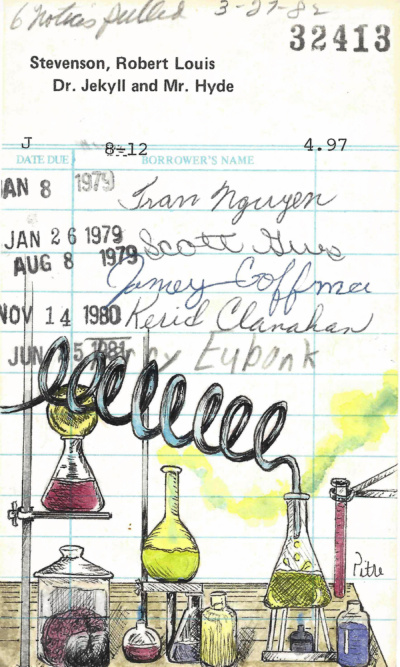 6 Notices pulled 3-27-82
32413
Stevenson, Robert Louis
Dr. Jekyll and Mr. Hyde
J 8-12 4.97
DATE DUE BORROWER'S NAME
JAN 8 1979 Tran Nguyen
JAN 26 1979 Scott
AUG 8 1979 Jamey Coffman
NOV 14 1980 Kerid Clanahan
JUN 1981 Eubank
Pitre